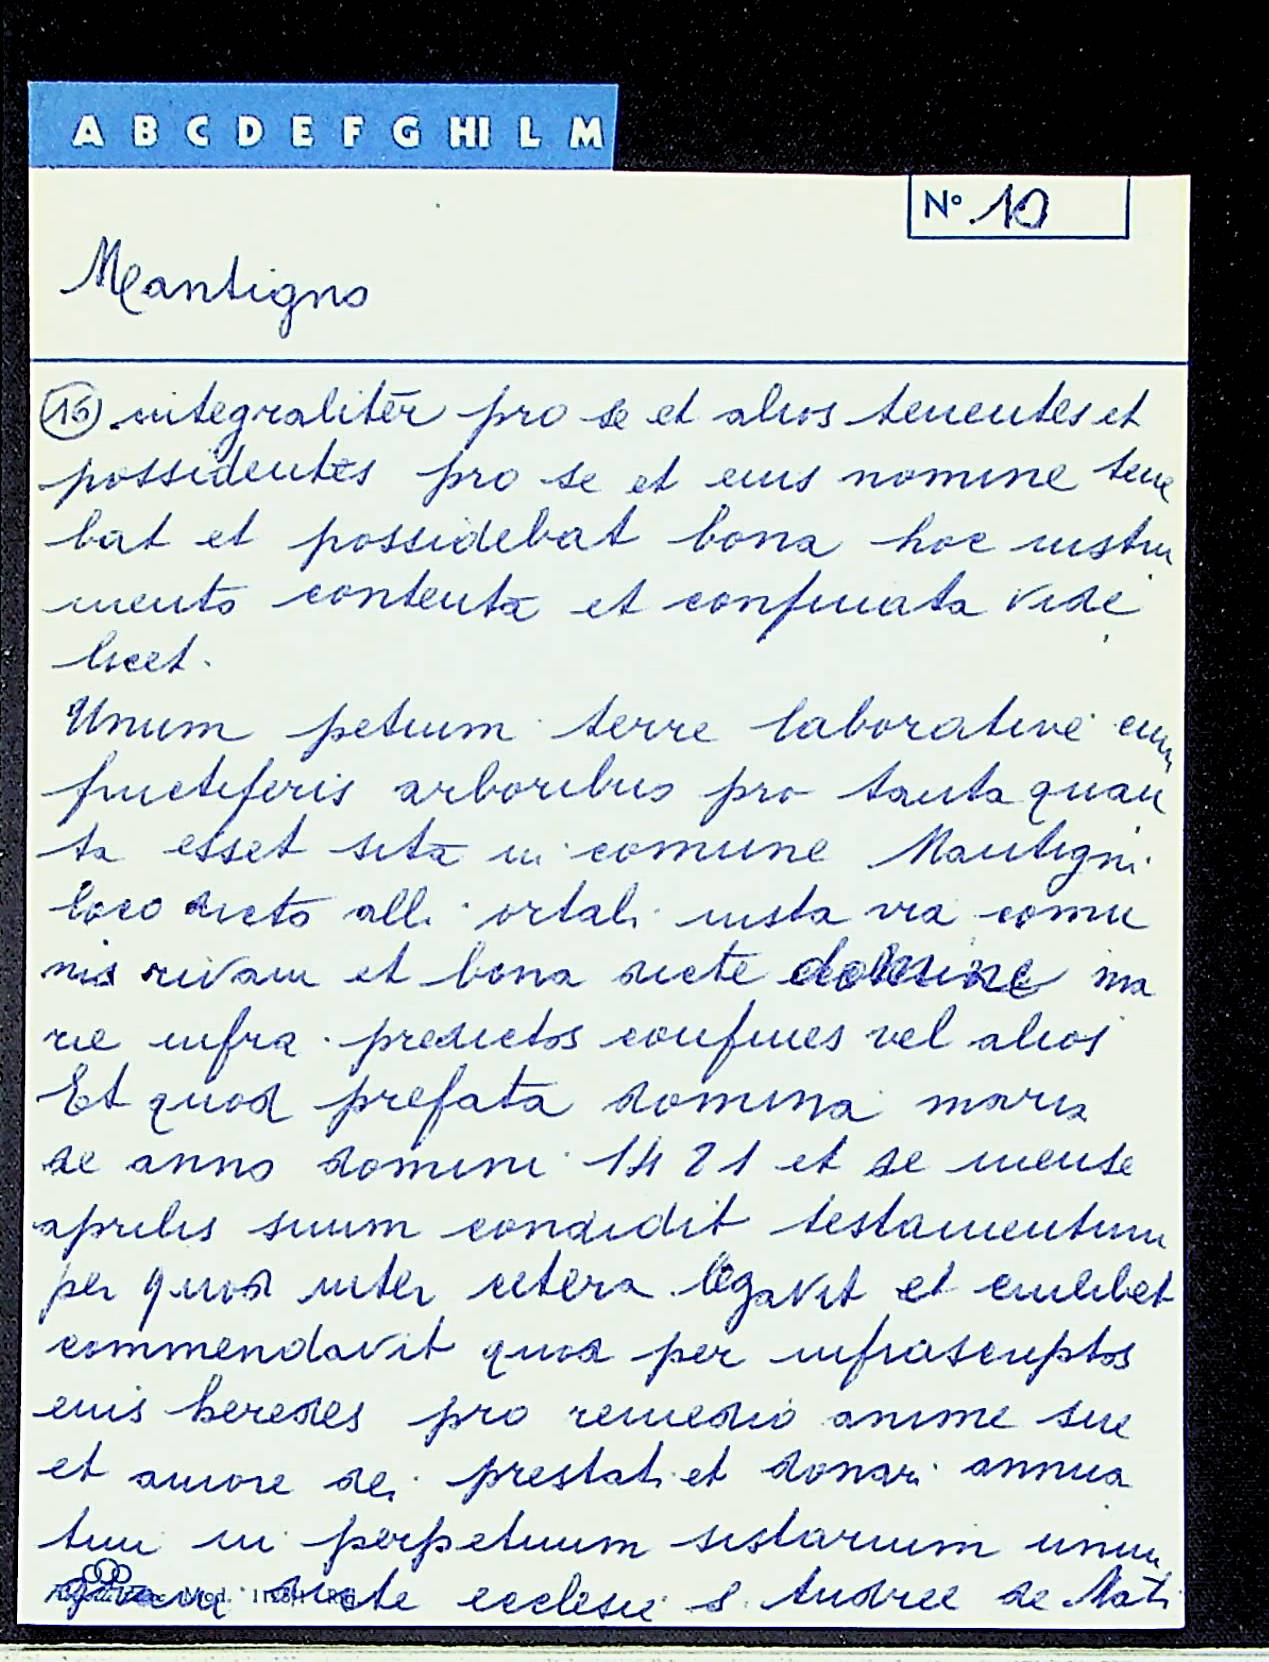 A B C D E F G HI L M
N° 10
Mantigno
(16) integraliter pro se et alios tenentes et
possidentes pro se et eius nomine tene
bat et possidebat bona hoc instru
mento contenta et confinata vide
licet.
Unum petium terre laborative cum
fructiferis arboribus pro tanta quan
ta esset sita in comune Mantigni
loco dicto alli ortali iusta via comu
nis rivam et bona dicte domine ma
rie infra predictos confines vel alios
Et quod prefata domina maria
de anno domini 1421 et de mense
aprilis suum condidit testamentum
per quod inter cetera legavit et cuilibet
commendavit quod per infrascriptos
eius heredes pro remedio anime sue
et amore dei prestati et donari annua
tim in perpetuum sistarium unum
dicte ecclesie S. Andree de Mati